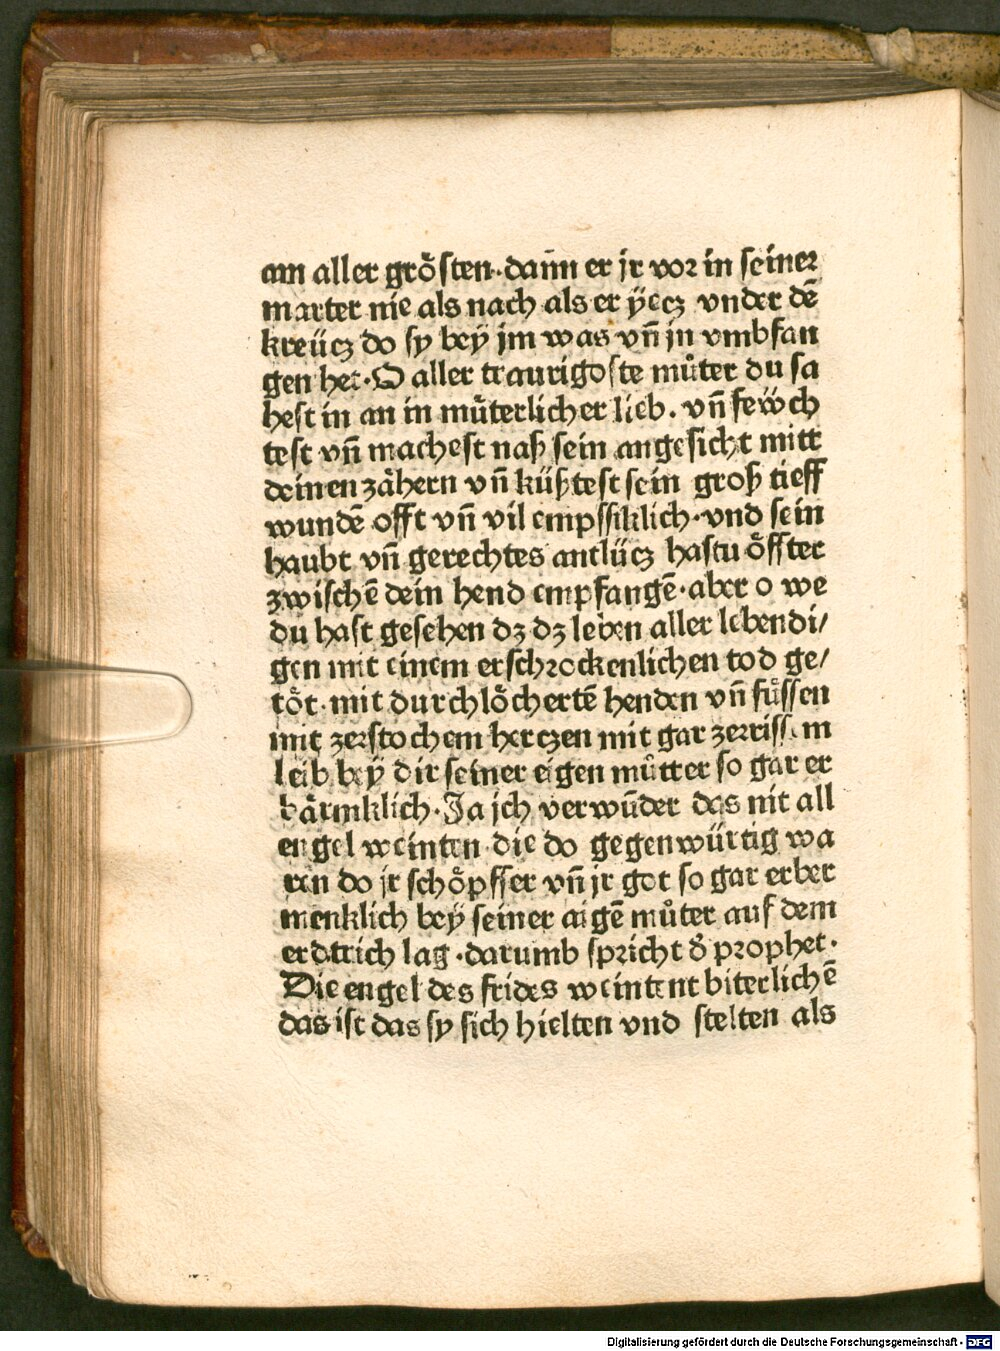 am aller grösten·dañn er jr vor in seiner
marter nie als nach als er ÿecz vnder dē
kreücz do sy beÿ jm was vñ jn vmbfan
gen het·O aller traurigoste muͦter du sa
hest in an in müterlicher lieb. vñ fewch
test vñ machest naß sein angesicht mitt
deinen zähern vñ küßtest sein groß tieff
wundē offt vñ vil empssiklich·vnd sein
haubt vñ gerechtes antlücz hastu öffter
zwischē dein hend empfangē·aber o we
du hast gesehen dz dz leben aller lebendi/
gen mit einem erschrockenlichen tod ge/
töt·mit durchlöchertē henden vñ füssen
mit zerstochem herczen mit gar zerrissem
leib beÿ dir seiner eigen muͦtter so gar er
bärmklich·Ja jch verwūder das nit all
engel weinten die do gegenwürtig wa
ren do jr schöpffer vñ jr got so gar erber
menklich beÿ seiner aigē muͦter auf dem
erdtrich lag·darumb spricht d̕ prophet·
Die engel des frides weintent biterlichē
das ist das sy sich hielten vnd stelten als
Digitalisierung gefördert durch die Deutsche Forschungsgemeinschaft - DFG